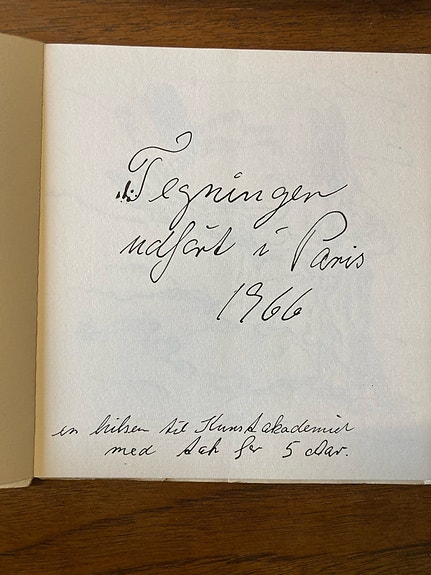 Tegninger
udført i Paris
1966
en hilsen til Kunstakademiet
med tak for 5 Aar.